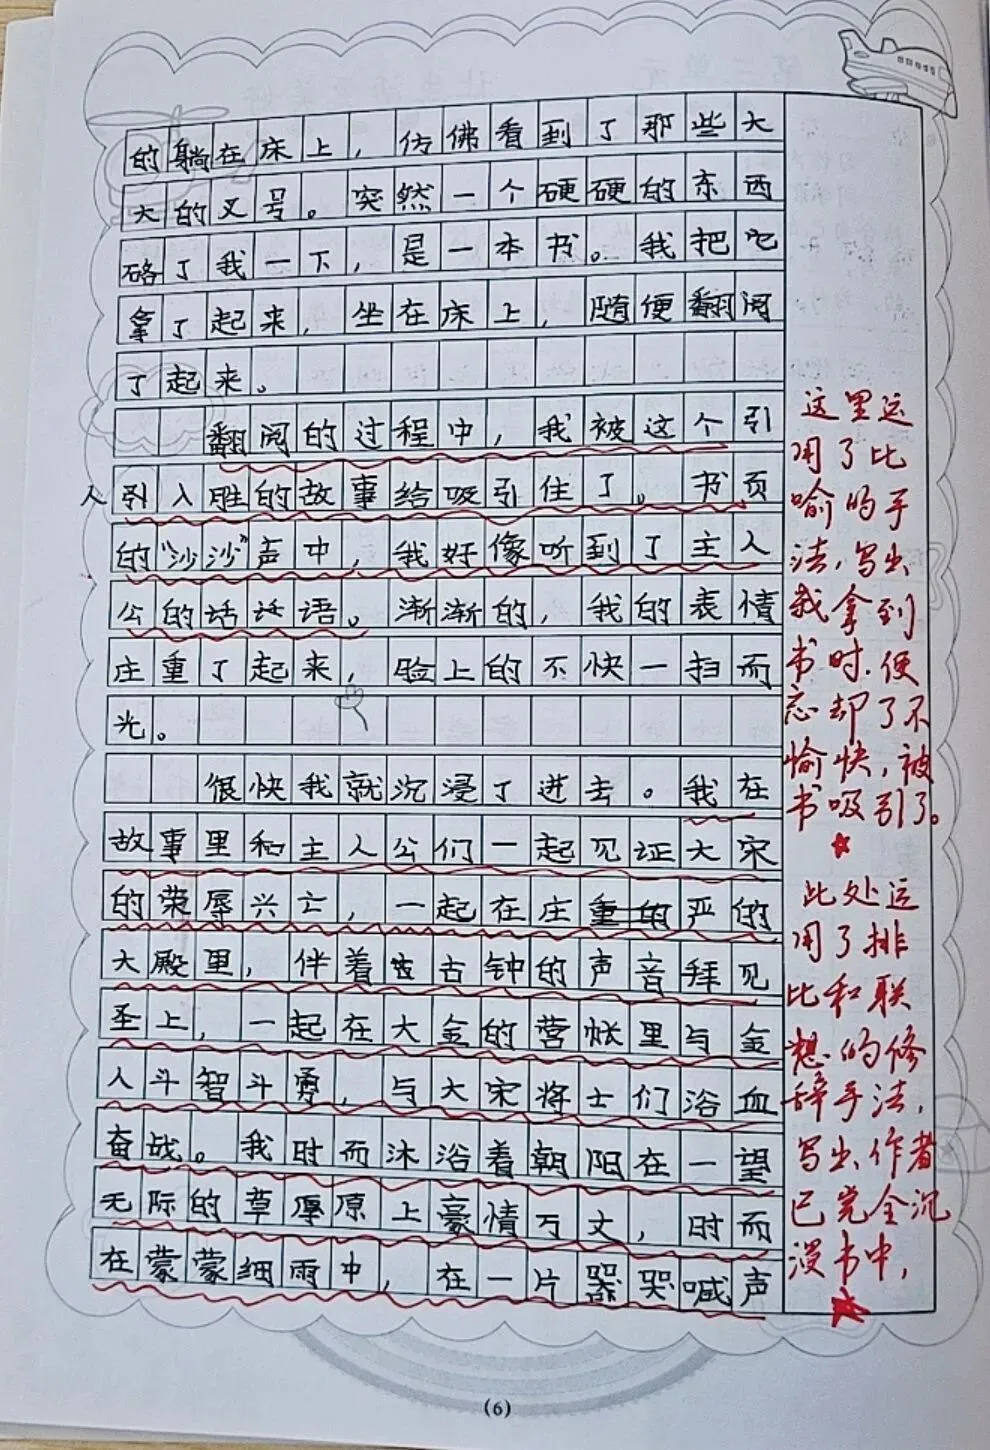 的躺在床上，仿佛看到了那些大
大的叉号。突然一个硬硬的东西
硌了我一下，是一本书。我把它
拿了起来，坐在床上，随便翻阅
了起来。
翻阅的过程中，我被这个引
人引入胜的故事给吸引住了。书页
的“沙沙”声中，我好像听到了主人
公的话语。渐渐的，我的表情
庄重了起来，脸上的不快一扫而
光。
很快我就沉浸了进去。我在
故事里和主人公们一起见证大宋
的荣辱兴亡，一起在庄严的
大殿里，伴着古钟的声音拜见
圣上，一起在大金的营帐里与金
人斗智斗勇，与大宋将士们浴血
奋战。我时而沐浴着朝阳在一望
无际的草原上豪情万丈，时而
在蒙蒙细雨中，在一片哭喊声
这里运
用了比
喻的手
法，写出
我拿到
书时，便
忘却了不
愉快，被
书吸引了。
此处运
用了排
比和联
想的修
辞手法，
写出作者
已完全沉
浸书中，
(6)